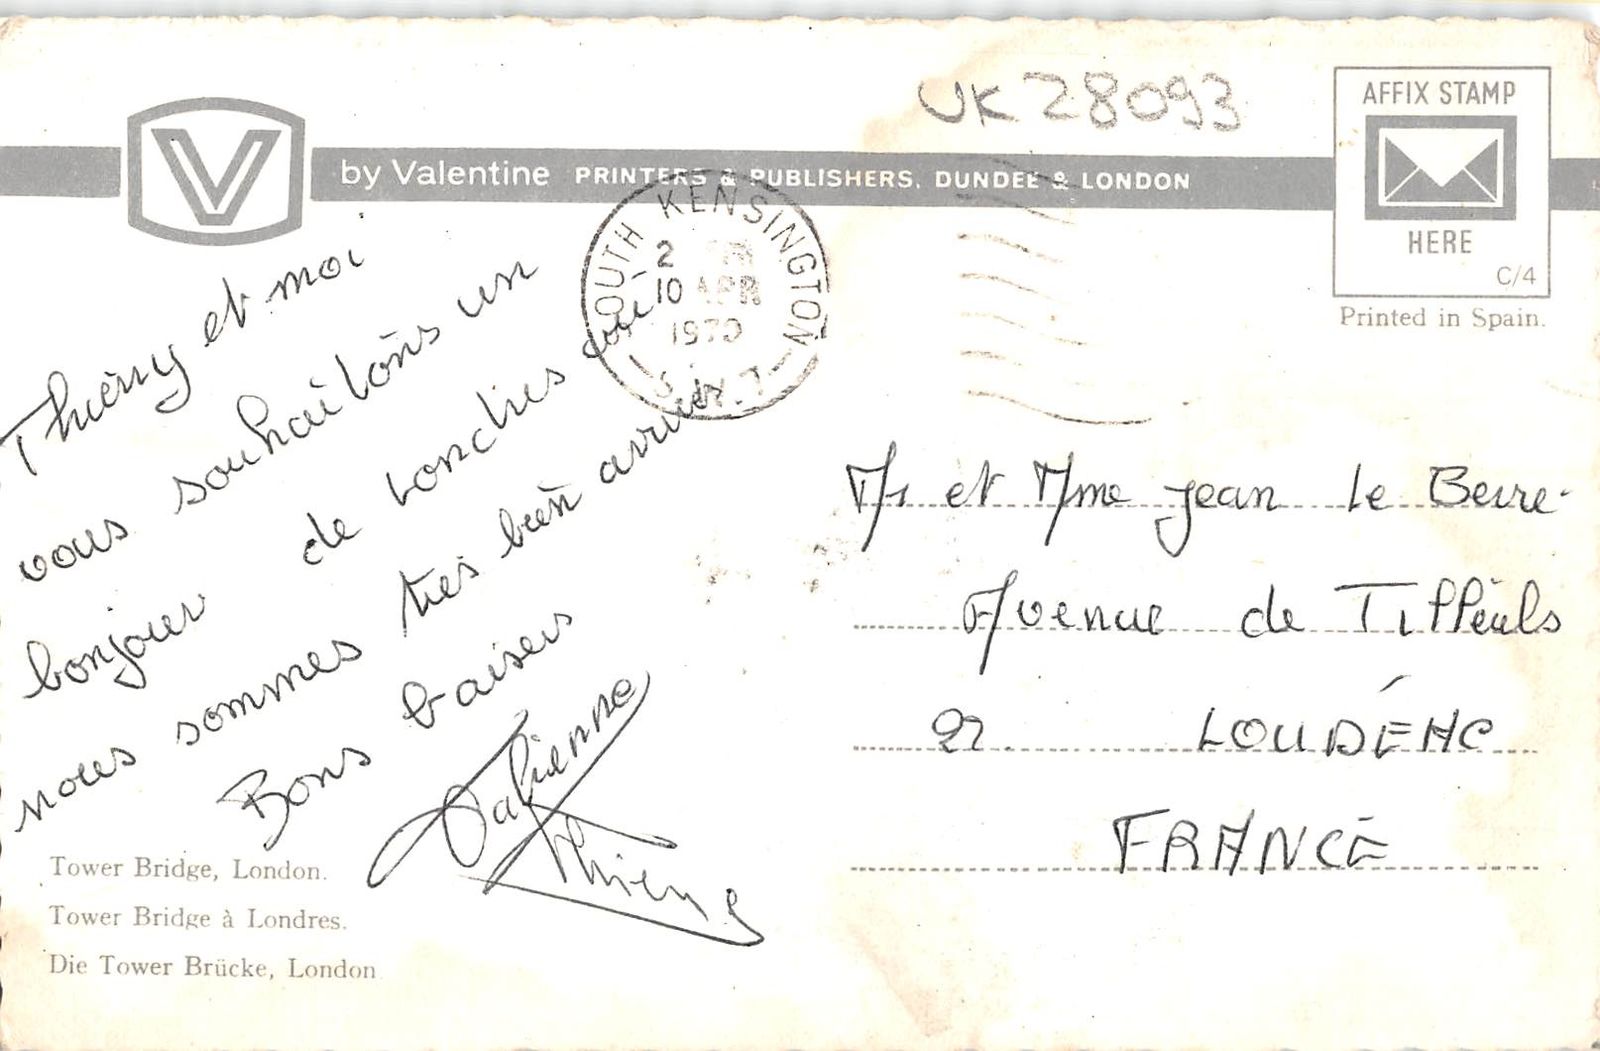 UK 28093
V
by Valentine PRINTERS & PUBLISHERS. DUNDEE & LONDON
AFFIX STAMP
HERE
C/4
Printed in Spain.
SOUTH KENSINGTON
10 APR
1970
S.W.7
Thierry et moi
vous souhaitons un
bonjour de Londres où
nous sommes très bien arrivés
Bons baisers
Fabienne
Thierry
Mr et Mme Jean Le Berre
Avenue de Tilleuls
22. LOUDÉAC
FRANCE
Tower Bridge, London.
Tower Bridge à Londres.
Die Tower Brücke, London